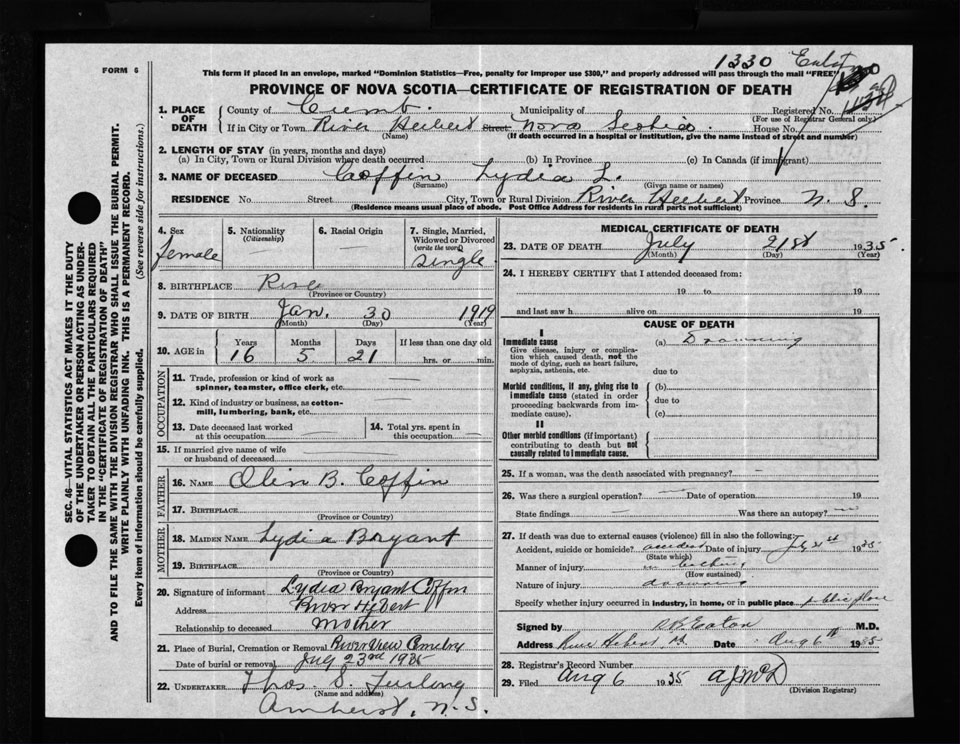 1330
FORM 6
This form if placed in an envelope, marked "Dominion Statistics—Free, penalty for improper use $300," and properly addressed will pass through the mail "FREE"
PROVINCE OF NOVA SCOTIA—CERTIFICATE OF REGISTRATION OF DEATH
1. PLACE OF DEATH
County of Cumb. Municipality of Registered No.
(For use of Registrar General only)
If in City or Town River Heebert Street Nova Scotia. House No.
(Name) (If death occurred in a hospital or institution, give the name instead of street and number)
2. LENGTH OF STAY (in years, months and days)
(a) In City, Town or Rural Division where death occurred (b) In Province (c) In Canada (if immigrant)
3. NAME OF DECEASED Coffin Lydia L.
(Surname) (Given name or names)
RESIDENCE No. Street City, Town or Rural Division River Heebert Province N. S.
(Residence means usual place of abode. Post Office Address for residents in rural parts not sufficient)
4. Sex
female
5. Nationality
(Citizenship)
6. Racial Origin
7. Single, Married, Widowed or Divorced
(write the word)
Single
8. BIRTHPLACE River
(Province or Country)
9. DATE OF BIRTH Jan. 30 1919
(Month) (Day) (Year)
10. AGE in
Years Months Days If less than one day old
16 5 21 hrs. or min.
OCCUPATION
11. Trade, profession or kind of work as spinner, teamster, office clerk, etc.
12. Kind of industry or business, as cotton-mill, lumbering, bank, etc.
13. Date deceased last worked at this occupation
14. Total yrs. spent in this occupation
15. If married give name of wife or husband of deceased
FATHER
16. NAME Olin B. Coffin
17. BIRTHPLACE
(Province or Country)
MOTHER
18. MAIDEN NAME Lydia Bryant
19. BIRTHPLACE
(Province or Country)
20. Signature of informant Lydia Bryant Coffin
Address River Hebert
Relationship to deceased Mother
21. Place of Burial, Cremation or Removal River View Cemetery
Date of burial or removal July 23rd 1935
22. UNDERTAKER Thos. S. Furlong
(Name and address)
Amherst, N. S.
MEDICAL CERTIFICATE OF DEATH
23. DATE OF DEATH July 21st 1935.
(Month) (Day) (Year)
24. I HEREBY CERTIFY that I attended deceased from:
19 to 19
and last saw h alive on 19
CAUSE OF DEATH
I
Immediate cause (a) Drowning
Give disease, injury or complication which caused death, not the mode of dying, such as heart failure, asphyxia, asthenia, etc.
due to
Morbid conditions, if any, giving rise to immediate cause (stated in order proceeding backwards from immediate cause).
(b)
due to
(c)
II
Other morbid conditions (if important) contributing to death but not causally related to immediate cause.
25. If a woman, was the death associated with pregnancy?
26. Was there a surgical operation? Date of operation 19
State findings Was there an autopsy? no
27. If death was due to external causes (violence) fill in also the following:
Accident, suicide or homicide? accident Date of injury July 21st 1935
(State which)
Manner of injury in bathing
(How sustained)
Nature of injury drowning
Specify whether injury occurred in industry, in home, or in public place public place
Signed by Eaton M.D.
Address River Hebert Date Aug 6th 1935
28. Registrar's Record Number
29. Filed Aug 6 1935
(Division Registrar)
SEC. 46—VITAL STATISTICS ACT MAKES IT THE DUTY
OF THE UNDERTAKER OR PERSON ACTING AS UNDER-
TAKER TO OBTAIN ALL THE PARTICULARS REQUIRED
IN THE "CERTIFICATE OF REGISTRATION OF DEATH"
AND TO FILE THE SAME WITH THE DIVISION REGISTRAR WHO SHALL ISSUE THE BURIAL PERMIT.
WRITE PLAINLY WITH UNFADING INK. THIS IS A PERMANENT RECORD.
Every item of information should be carefully supplied. (See reverse side for instructions.)